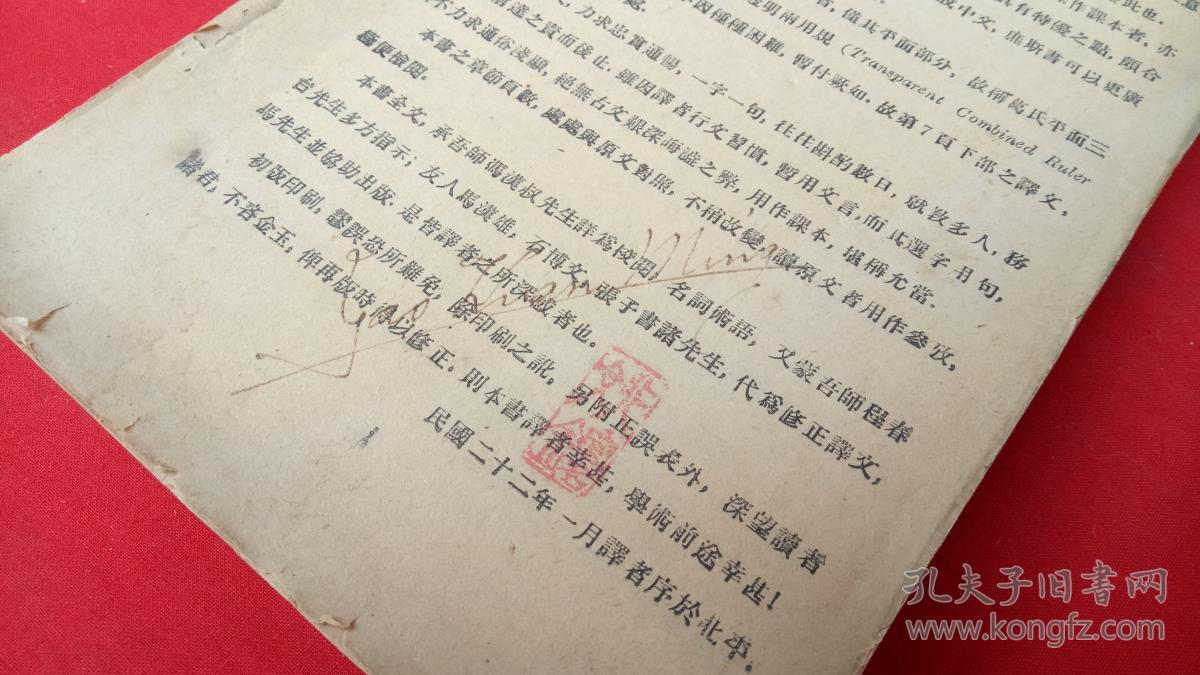 此也.
作課本者，亦
有特優之點，頗合
成中文，應斯書可以更廣
者，僅其平面部分，故稱葛氏平面三
透明兩用規 (Transparent Combined Ruler
因種種困難，暫付缺如．故第7頁下部之譯文，
力求忠實通暢，一字一句，往往斟酌數日，就教多人，務
之責而後止．雖因譯者行文習慣，暫用文言，而其選字用句，
不力求通俗淺顯，絕無古文艱深晦澁之弊，用作課本，堪稱允當．
本書之章節頁數，處處與原文對照，不稍改變，讀原文者用作叅攷，
極便檢閱．
本書全文，承吾師馮漢叔先生詳爲校閱，名詞術語，又蒙吾師程春
台先生多方指示；友人馬漢雄，石博文，張子書諸先生，代爲修正譯文，
馬先生並協助出版．是皆譯者之所深感者也。
初版印刷，謬誤恐所難免，除印刷之訛，另附正誤表外，深望讀者
諸君，不吝金玉，俾再版時得以修正．則本書譯者幸甚，學術前途幸甚！
民國二十二年一月譯者序於北平。
孔夫子旧書网
www.kongfz.com